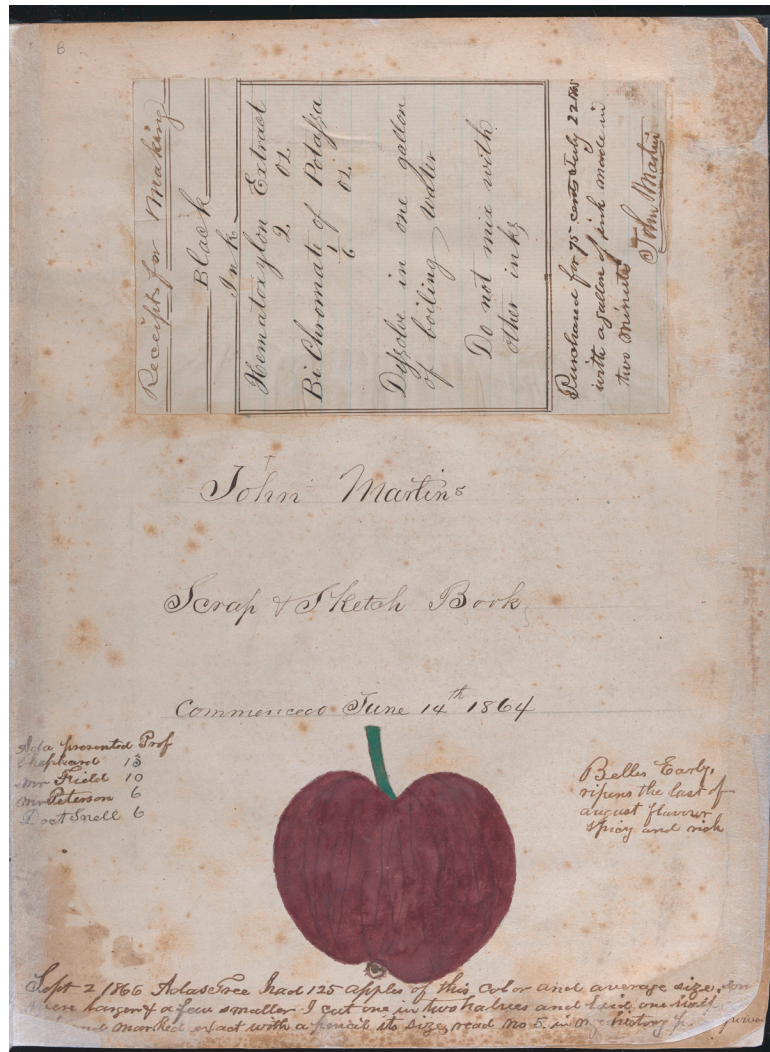 6
Receipts for Making
Black
Ink
Hematoxylon Extract
2 oz.
Bi Chromate of Potassa
1/6 oz.
Dissolve in one gallon
of boiling water
Do not mix with
other inks
Purchased for 75 cents July 22
with a gallon of ink made in
two minutes
John Martin
John Martins
Scrap & Sketch Book
Commenced June 14th 1864
Ada presented Prof
Shephard 13
Mr Field 10
Mr Peterson 6
Doct Snell 6
Belles Early,
ripens the last of
august flavour
spicy and rich
Sept 2 1866 Adas Tree had 125 apples of this color and average size,
were larger & a few smaller I cut one in two halves and laid one half
and marked exact with a pencil its size, read no 5. in my history